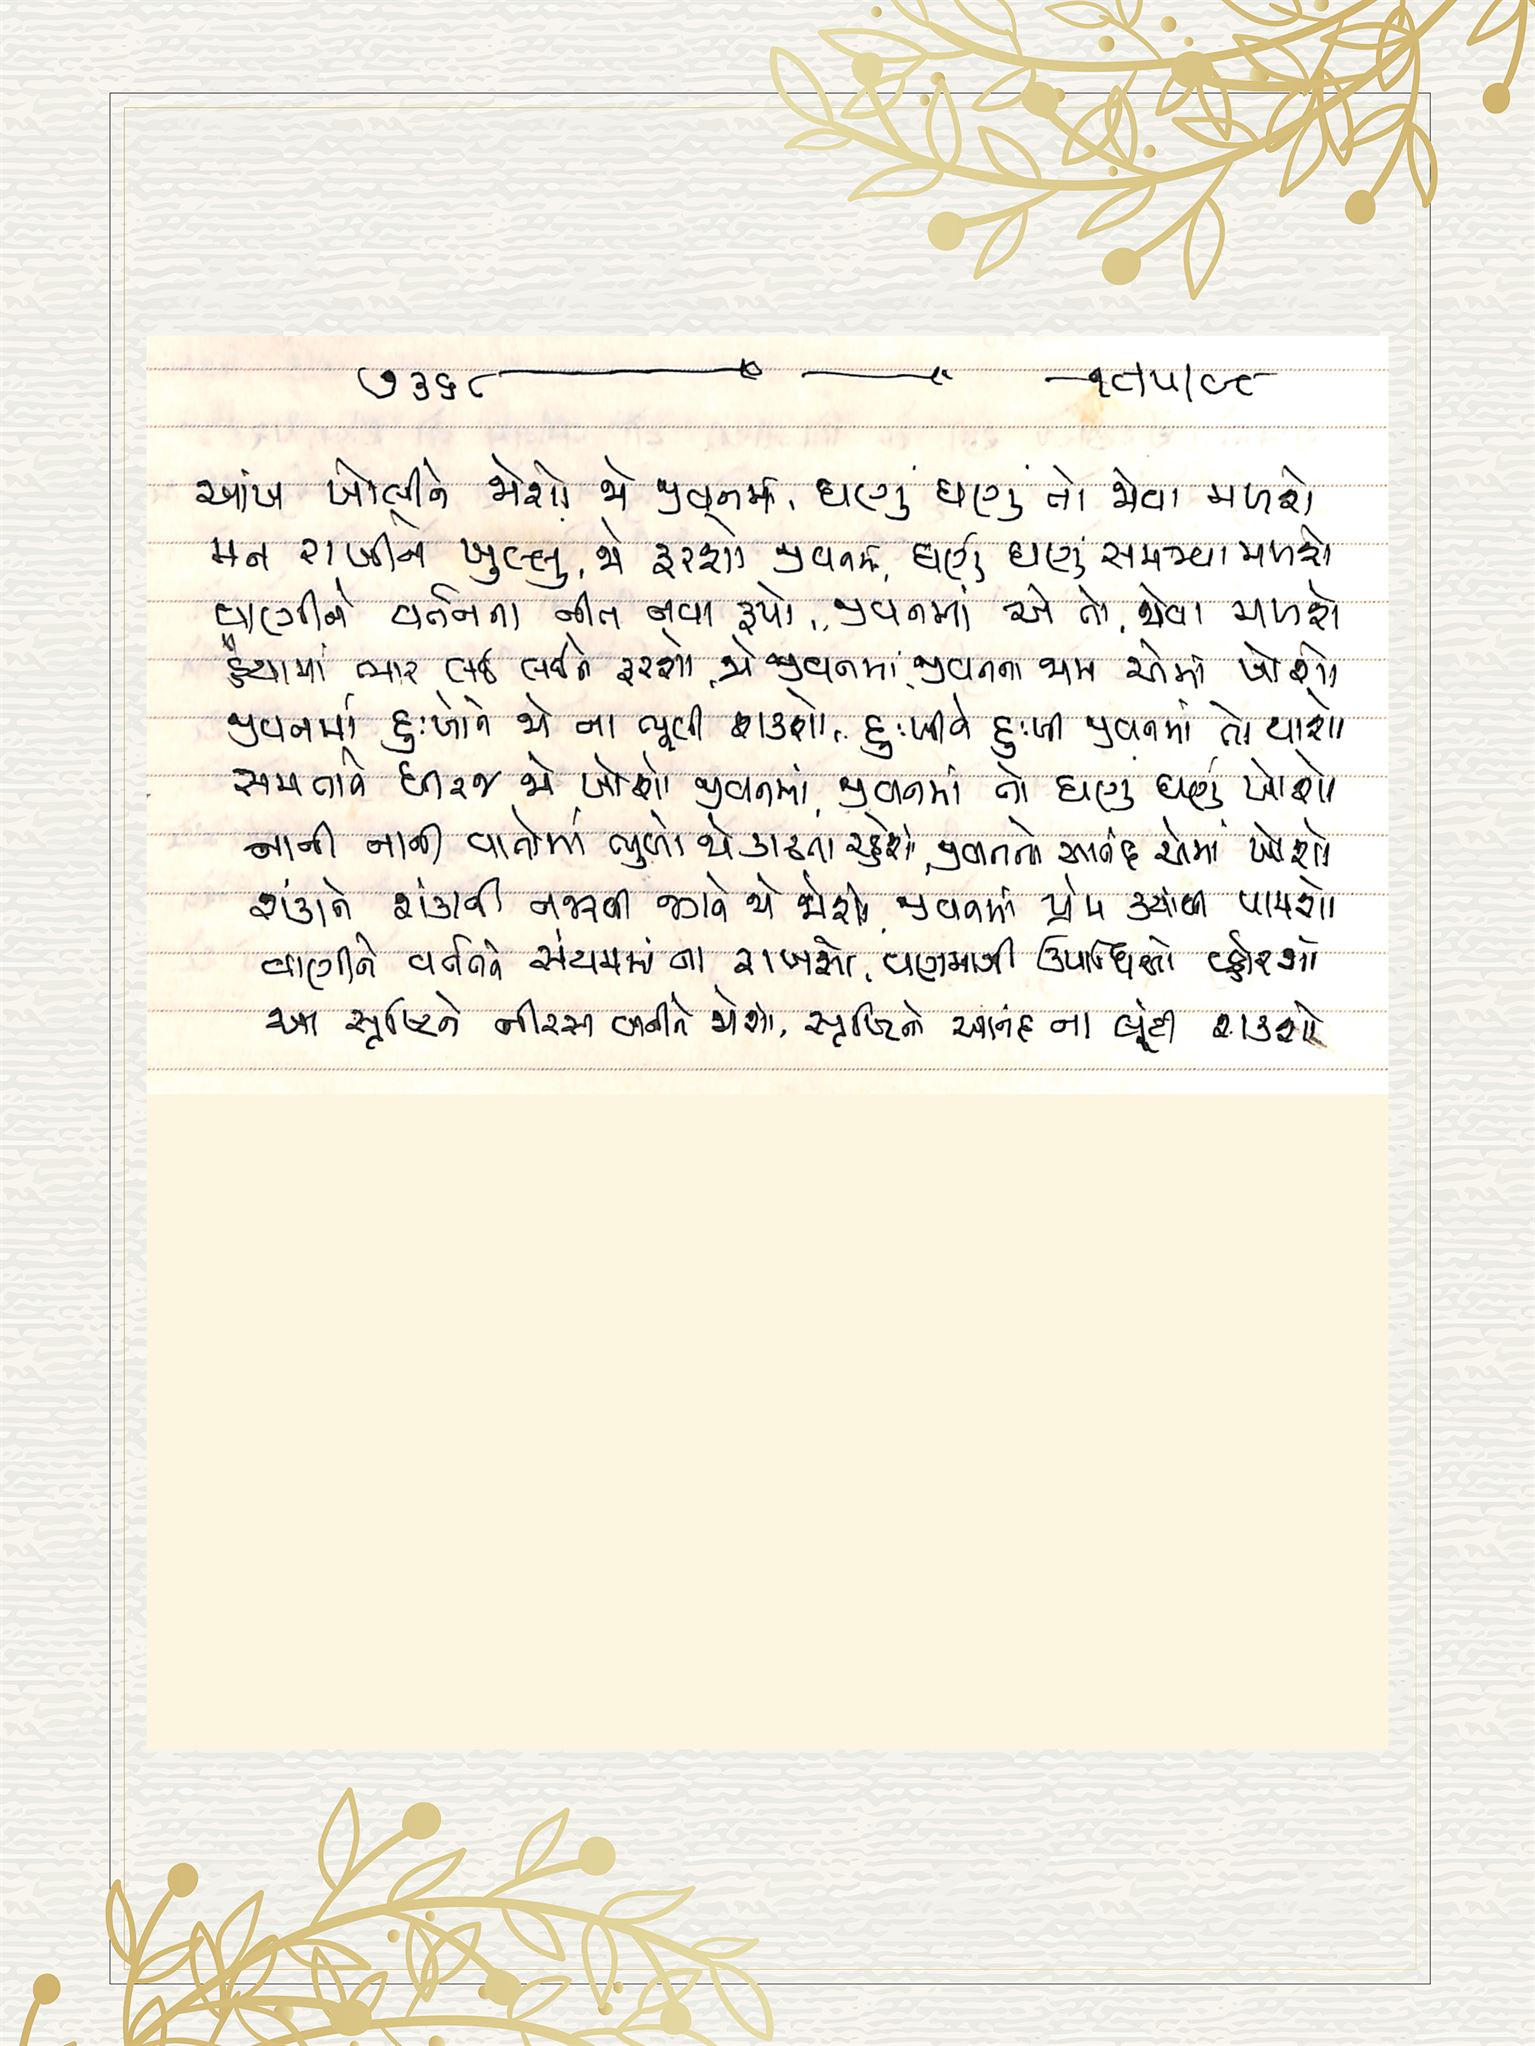 ૭૩૬૮ ૧૮/૫/૯૮
આંખ ખોલીને જોશો જો જીવનમાં, ઘણું ઘણું તો જોવા મળશે
મન રાખીને ખુલ્લું, જો ફરશો જીવનમાં, ઘણું ઘણું સમજવા મળશે
વાણીને વર્તનના નીત નવા રૂપો, જીવનમાં એ તો, જોવા મળશે
હૈયામાં ભાર લઈ લઈને ફરશો, જો જીવનમાં, જીવનના જામ એમાં ખોશો
જીવનમાં દુઃખોને જો ના ભૂલી શકશો, દુઃખીને દુઃખી જીવનમાં તો થાશો
સમતાને ધીરજ જો ખોશો જીવનમાં, જીવનમાં તો ઘણું ઘણું ખોશો
નાની નાની વાતોમાં ભુલો જો કાઢતા રહેશો, જીવનનો આનંદ એમાં ખોશો
શંકાને શંકાની નજરથી જગને જો જોશો, જીવનમાં પ્રેમ ક્યાંથી પામશો
વાણીને વર્તનને સંયમમાં ના રાખશો, વણમાગી ઉપાધિઓ વ્હોરશો
આ સૃષ્ટિને નીરસ બનીને જોશો, સૃષ્ટિનો આનંદ ના લૂંટી શકશો